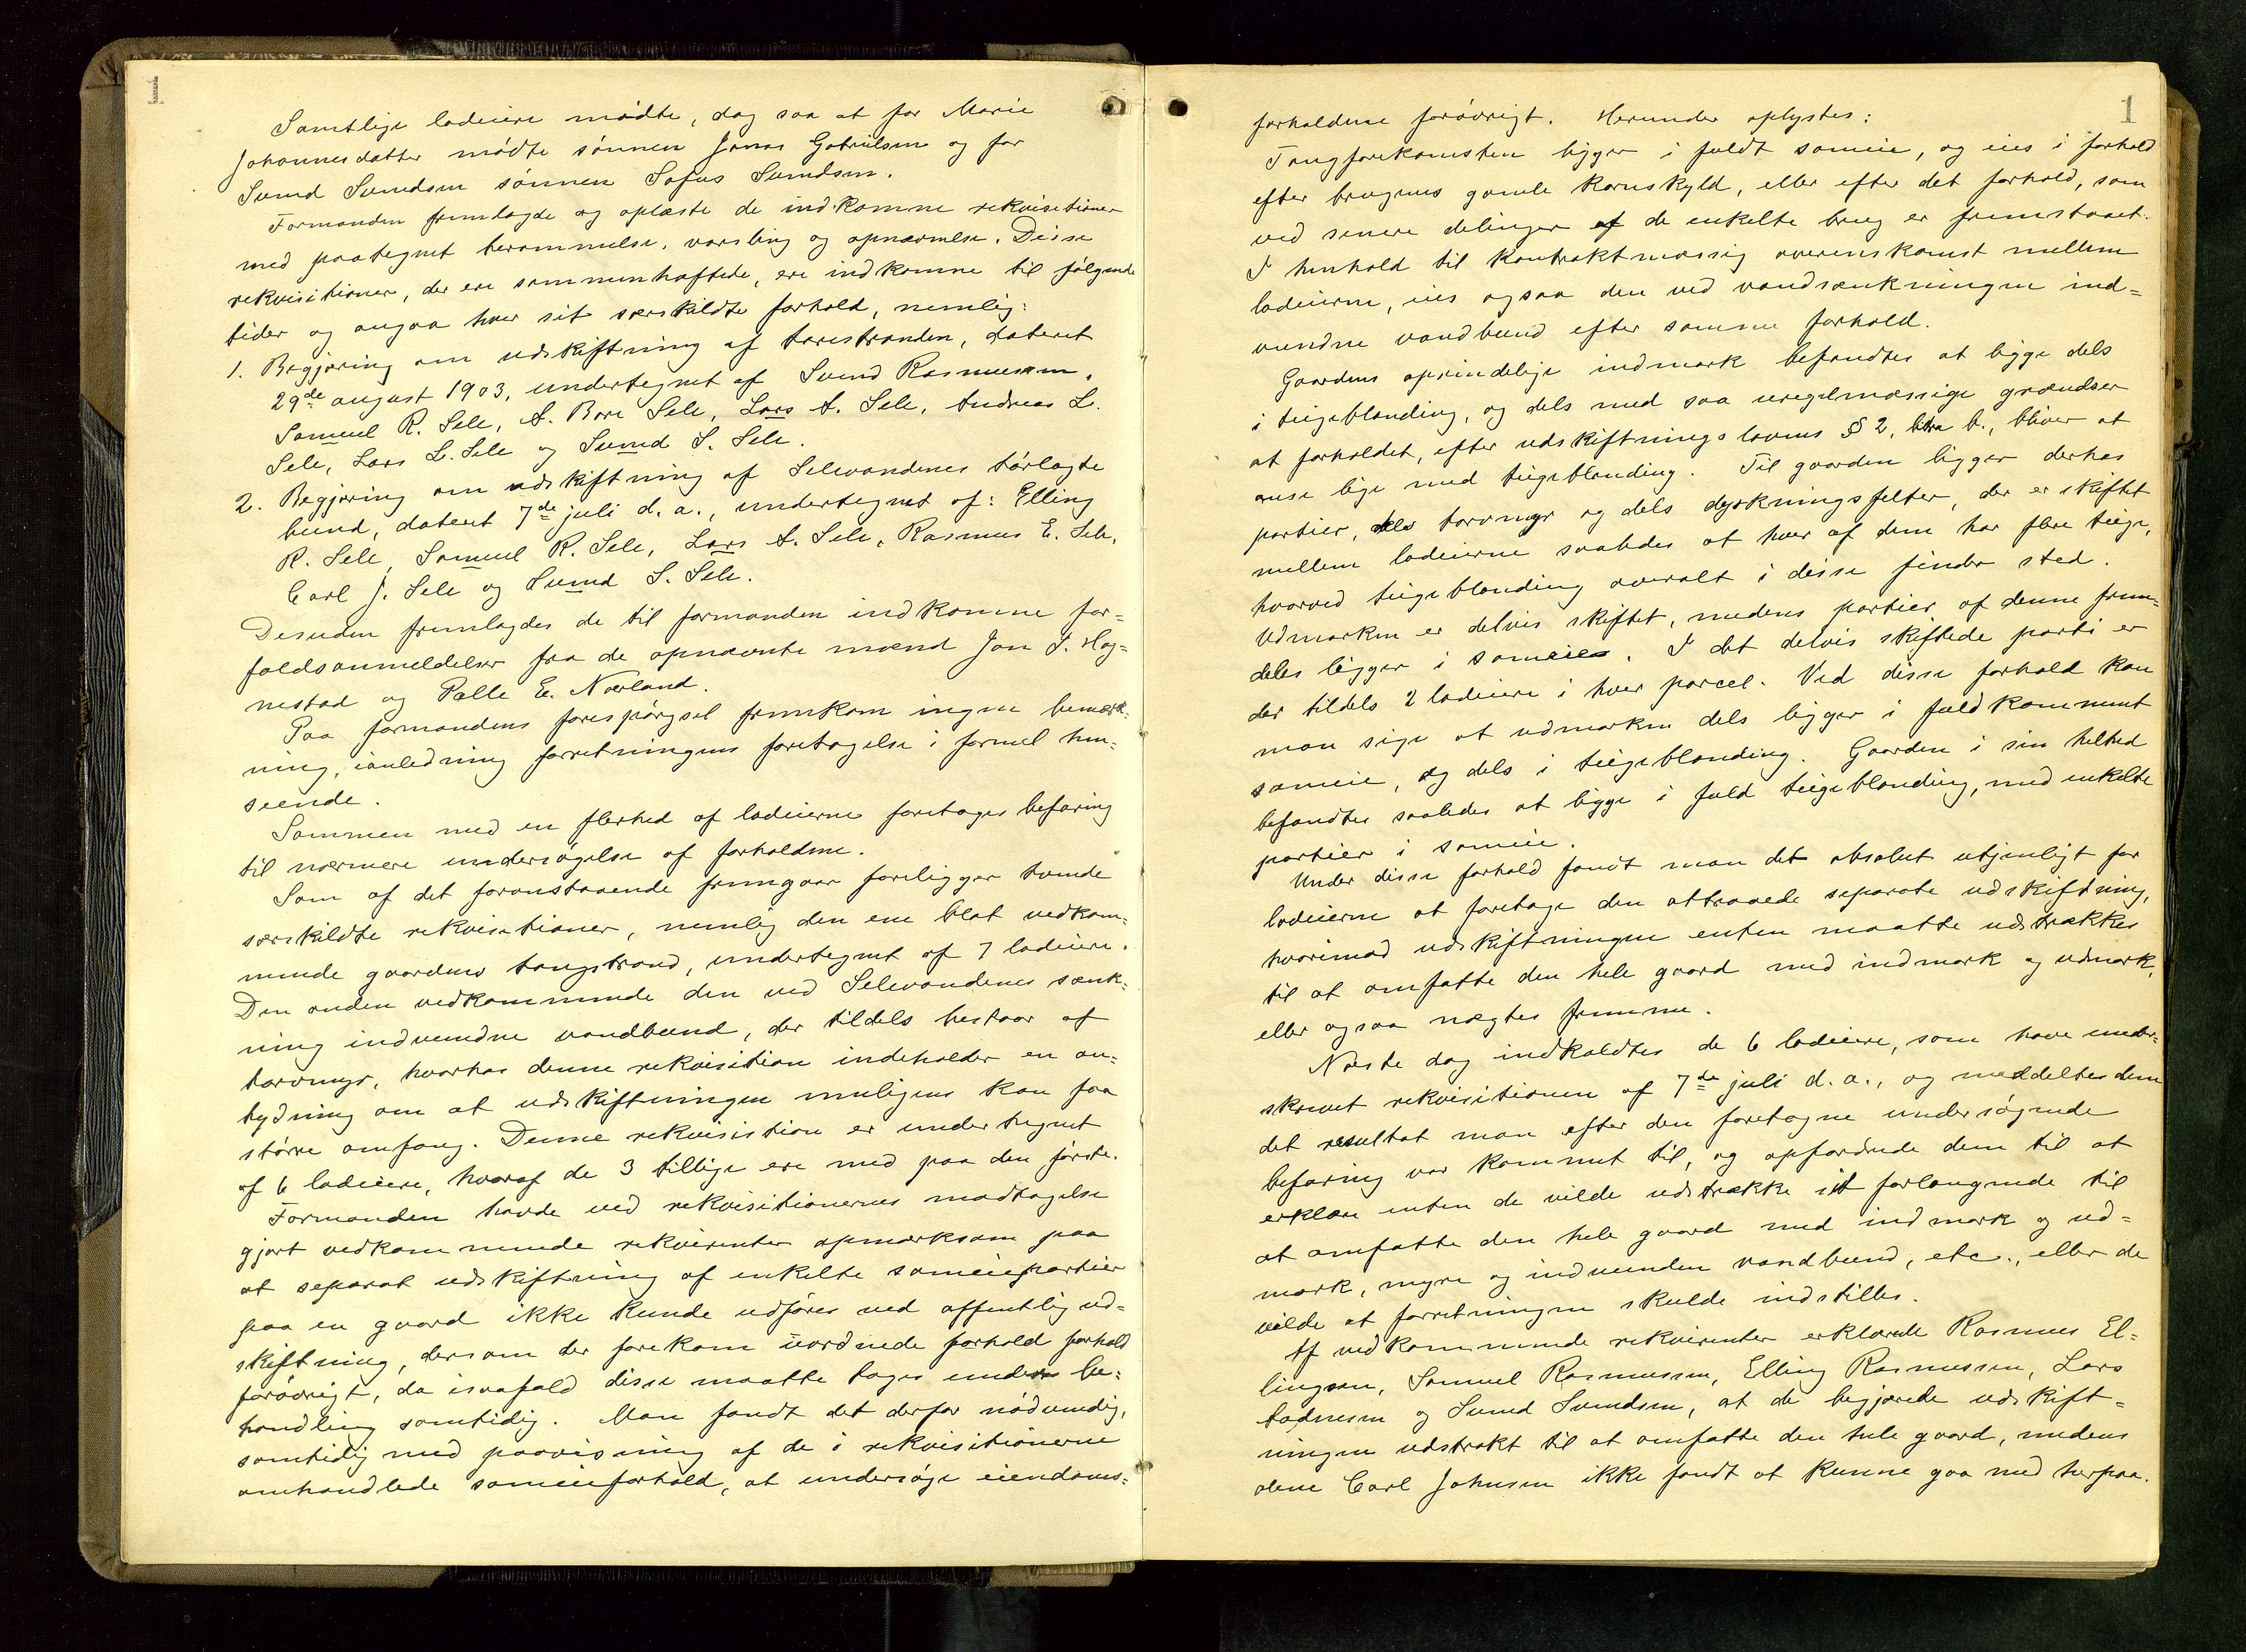 1
Samtlige lodeiere mødte, dog saa at for Marie
Johannesdatter mødte sønnen Jonas Gabrielsen og for
Svend Svendsen sønnen Sofus Svendsen.
Formanden fremlagde og oplæste de indkomne rekvisitioner
med paategnet berammelse, varsling og opnævnelse. Disse
rekvisitioner, der ere sammenhæftede, ere indkomne til følgende
tider og angaa hver sit særskildte forhold, nemlig:
1. Begjæring om udskiftning af tarestranden, dateret
29de august 1903, undertegnet af Svend Rasmussen,
Samuel R. Sele, A. Bore Sele, Lars A. Sele, Andreas L.
Sele, Lars L. Sele og Svend S. Sele.
2. Begjæring om udskiftning af Selevandenes tørlagte
bund, dateret 7de juli d. a., undertegnet af: Elling
R. Sele, Samuel R. Sele, Lars A. Sele, Rasmus E. Sele,
Carl J. Sele og Svend S. Sele.
Desuden fremlagdes de til formanden indkomne for=
faldsanmeldelser fra de opnævnte mænd Jon S. Hog=
nestad og Palle E. Nærland.
Paa formandens forespørgsel fremkom ingen bemærk=
ning, ianledning forretningens foretagelse i formel hen=
seende.
Sammen med en flerhed af lodeierne foretages befaring
til nærmere undersøgelse af forholdene.
Som af det foranstaaende fremgaar foreligger tvende
særskildte rekvisitioner, nemlig den ene blot vedkom=
mende gaardens tangstrand, undertegnet af 7 lodeiere.
Den anden vedkommende den ved Selevandenes sænk=
ning indvundne vandbund, der tildels bestaar af
torvmyr, hvorhos denne rekvisition indeholder en an=
tydning om at udskiftningen muligens kan faa
større omfang. Denne rekvisistion er undertegnet
af 6 lodeiere, hvoraf de 3 tillige ere med paa den første.
Formanden havde ved rekvisitionernes modtagelse
gjort vedkommende rekvirenter opmærksom paa
at separat udskiftning af enkelte sameiepartier
paa en gaard ikke kunde udføres ved offentlig ud=
skiftning, dersom der forekom uordnede forhold forhold
forøvrigt, da isaafald disse maatte tages under be=
handling samtidig. Man fandt det derfor nødvendig,
samtidig med paavisning af de i rekvisitionerne
omhandlede sameieforhold, at undersøge eiendoms=
1
forholdene forøvrigt. Herunder oplystes:
Tangforekomsten ligger i fuldt sameie, og eies i forhold
efter brugenes gamle kornskyld, eller efter det forhold, som
ved senere delinger af de enkelte brug er fremstaaet.
I henhold til kontraktmæssig overenskomst mellem
lodeierne, eies ogsaa den ved vandsænkningen ind=
vundne vandbund efter samme forhold.
Gaardens oprindelige indmark befandtes at ligge dels
i teigeblanding, og dels med saa uregelmæssige grændser
at forholdet, efter udskiftningslovens § 2, litra b., bliver at
anse lige med teigeblanding. Til gaarden ligger derhos
partier, dels torvmyr og dels dyrkningsfelter, der er skiftet
mellem lodeierne saaledes at hver af dem har flere teige,
hvorved teigeblanding overalt i disse finder sted.
Udmarken er delvis skiftet, medens partier af denne frem=
deles ligger i sameie. I det delvis skiftede parti er
der tildels 2 lodeiere i hver parcel. Ved disse forhold kan
man sige at udmarken dels ligger i fuldkomment
sameie, og dels i teigeblanding. Gaarden i sin helhed
befandtes saaledes at ligge i fuld teigeblanding, med enkelte
partier i sameie.
Under disse forhold fandt man det absolut utjenligt for
lodeierne at foretage den attraaede separate udskiftning,
hvorimod udskiftningen enten maatte udstrækkes
til at omfatte den hele gaard med indmark og udmark,
eller ogsaa nægtes fremme.
Næste dag indkaldtes de 6 lodeiere, som have under=
skrevet rekvisitionen af 7de juli d. a., og meddeltes dem
det resultat man efter den foretagne undersøgende
befaring var kommet til, og opfordrede dem til at
erklære enten de vilde udstrække sit forlangende til
at omfatte den hele gaard med indmark og ud=
mark, myre og indvunden vandbund, etc., eller de
vilde at forretningen skulde indstilles.
Af vedkommende rekvirenter erklærede Rasmus El=
lingsen, Samuel Rasmussen, Elling Rasmussen, Lars
Tadnesen og Svend Svendsen, at de begjærede udskift=
ningen udstrakt til at omfatte den hele gaard, medens
alene Carl Johnsen ikke fandt at kunne gaa med herpaa.